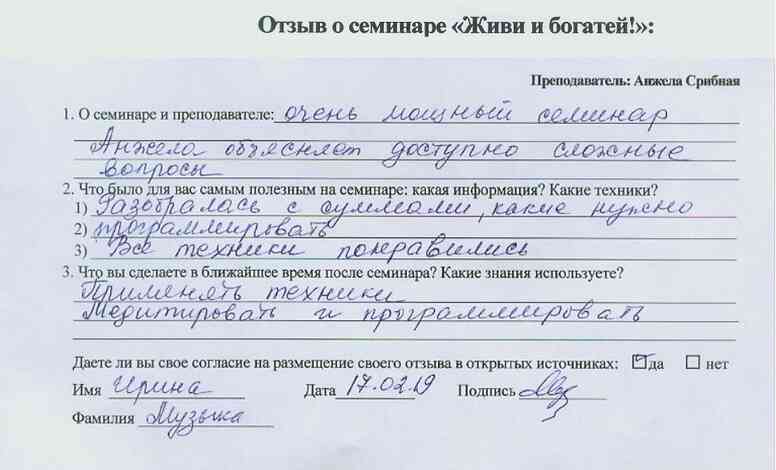 Отзыв о семинаре «Живи и богатей!»:
Преподаватель: Анжела Срибная
1. О семинаре и преподавателе: очень мощный семинар
Анжела объясняет доступно сложные
вопросы
2. Что было для вас самым полезным на семинаре: какая информация? Какие техники?
1) Разобралась с суммами, какие нужно
2) программировать
3) Все техники понравились
3. Что вы сделаете в ближайшее время после семинара? Какие знания используете?
Применять техники
Медитировать и программировать
Даете ли вы свое согласие на размещение своего отзыва в открытых источниках: да нет
Имя Ирина Дата 17.02.19 Подпись
Фамилия Музыка